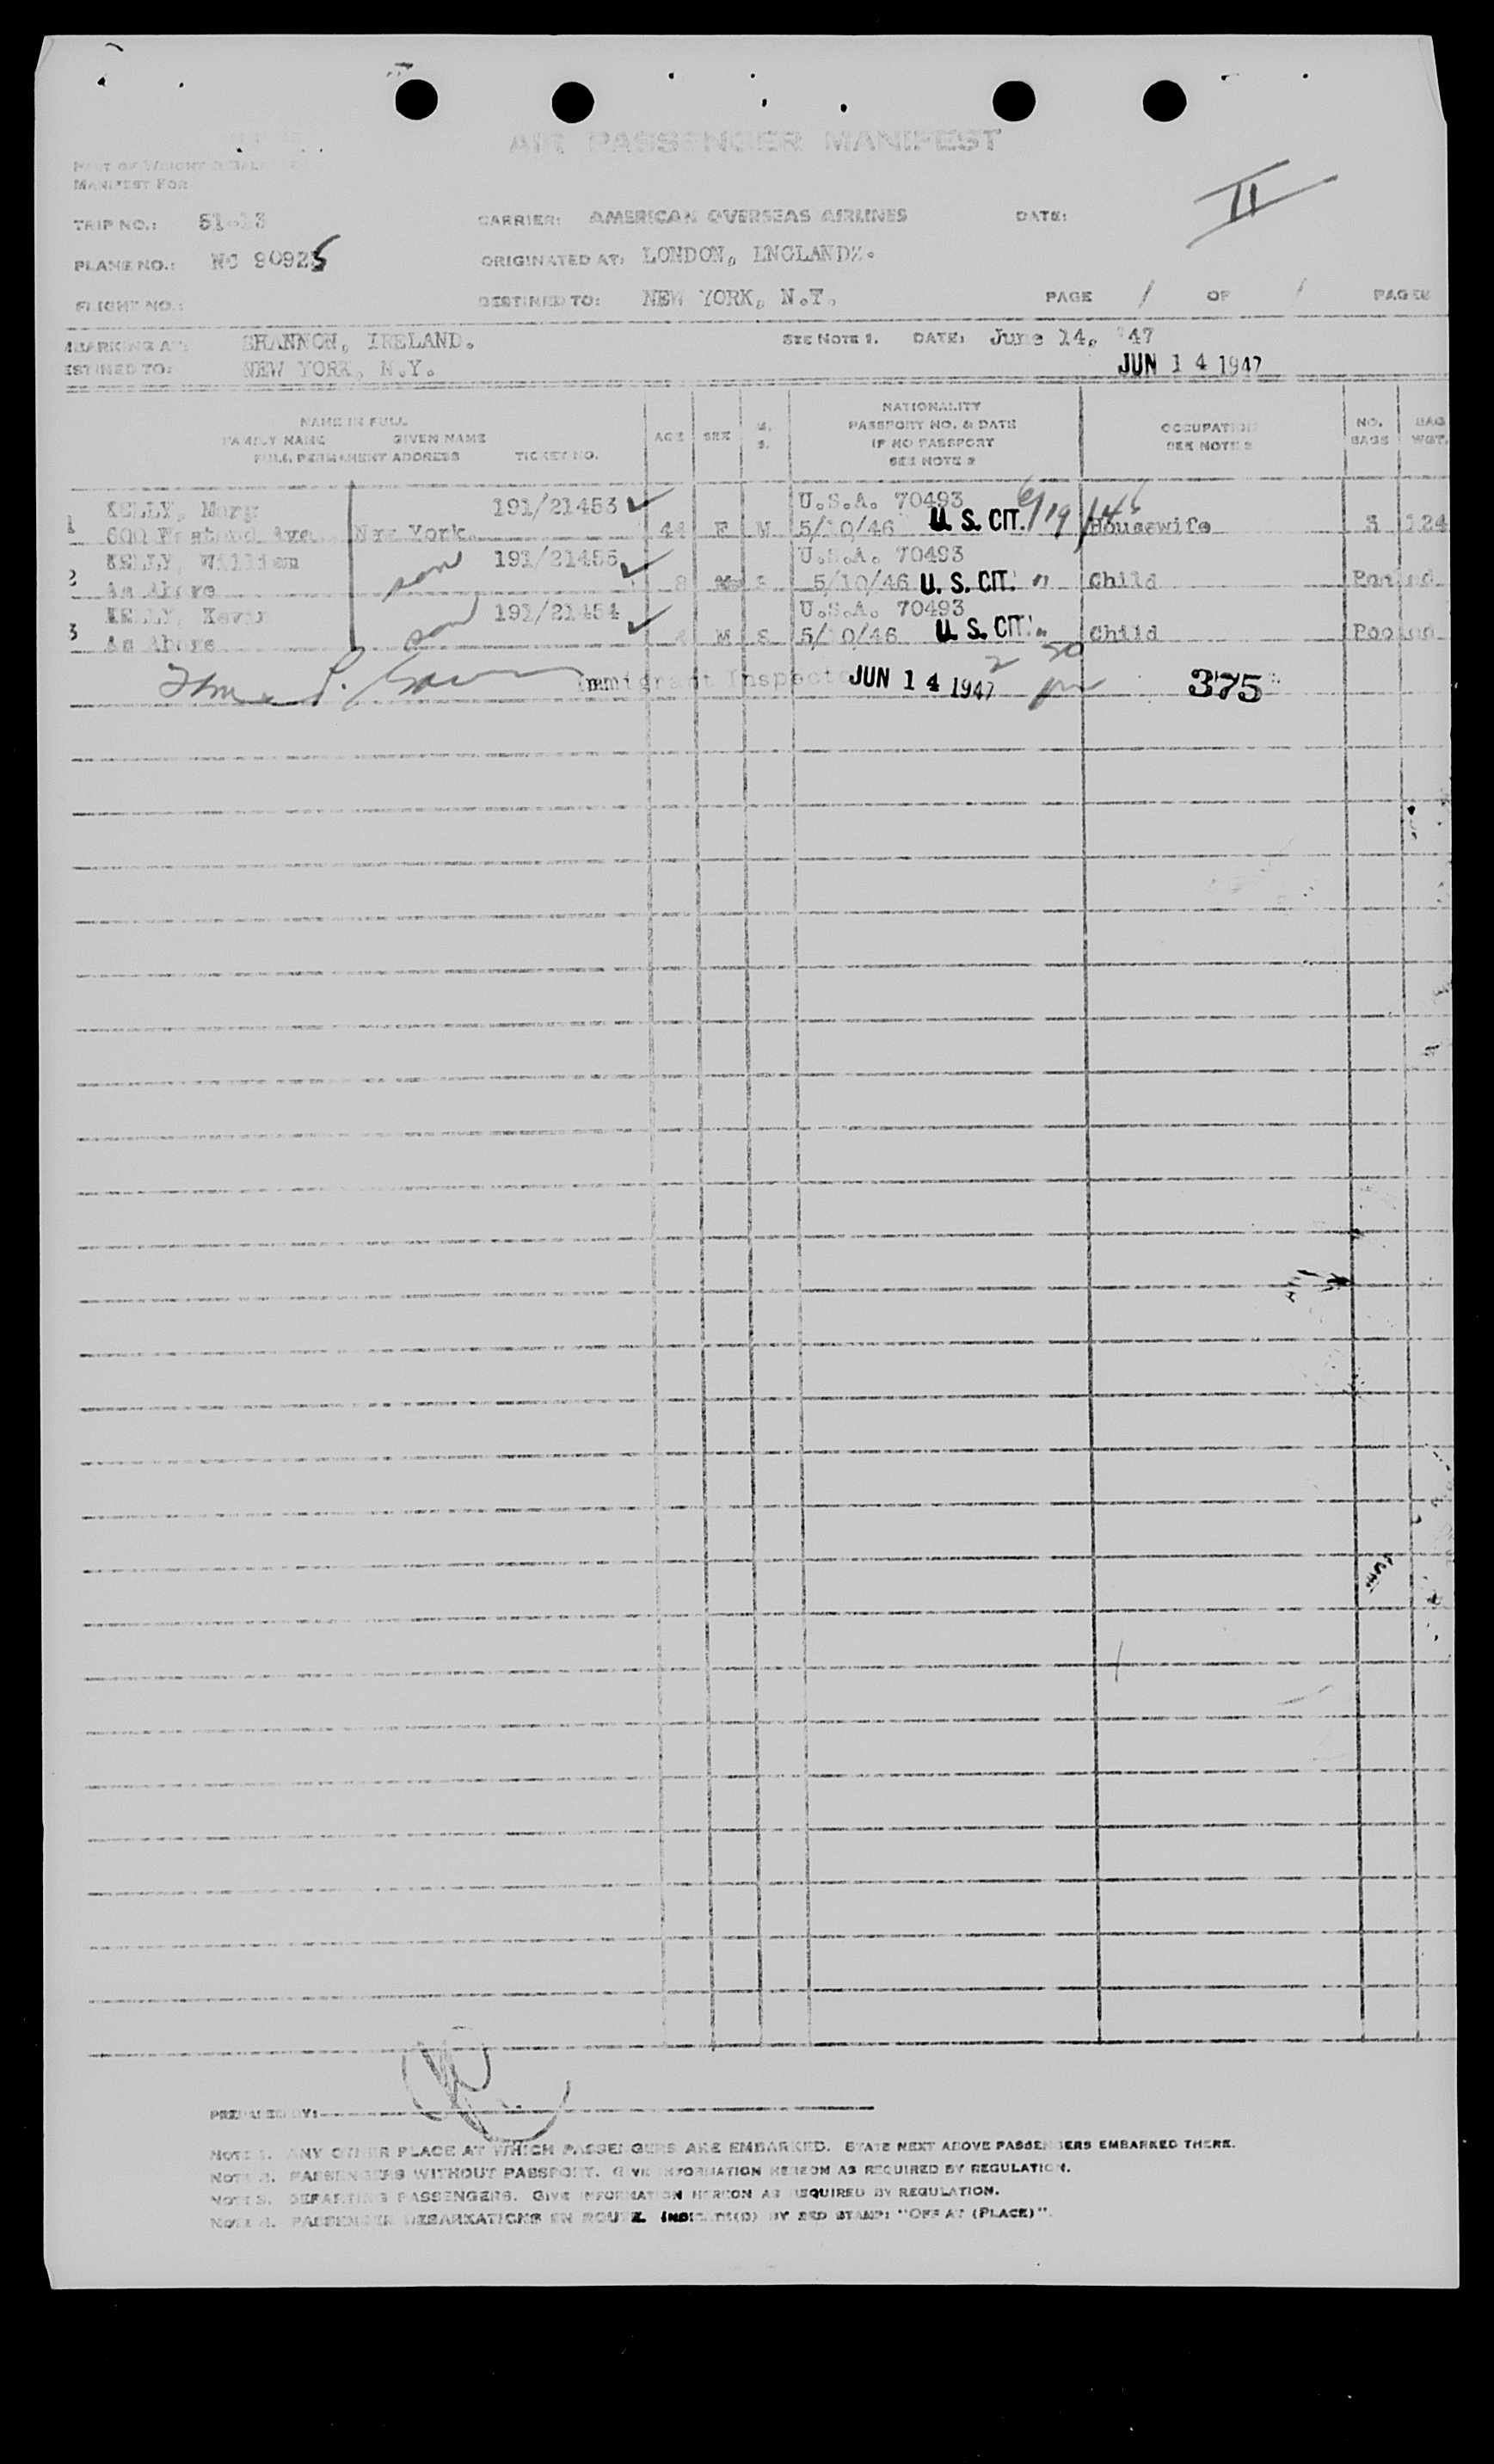 AIR PASSENGER MANIFEST
MANIFEST FOR
II
TRIP NO.: 51-13 CARRIER: AMERICAN OVERSEAS AIRLINES DATE:
PLANE NO.: NC 90925 ORIGINATED AT: LONDON, ENGLAND.
FLIGHT NO.: DESTINED TO: NEW YORK, N.Y. PAGE 1 OF 1 PAGES
EMBARKING AT: SHANNON, IRELAND. SEE NOTE 1. DATE: June 14, '47
DESTINED TO: NEW YORK, N.Y. JUN 14 1947
NAME IN FULL
FAMILY NAME GIVEN NAME
FULL PERMANENT ADDRESS TICKET NO.
AGE SEX M. S.
NATIONALITY
PASSPORT NO. & DATE
IF NO PASSPORT
SEE NOTE 2
OCCUPATION
SEE NOTE 3
NO. BAGS BAG WGT.
1 KELLY, Mary 191/21453 ✓ U.S.A. 70493 6/19/46
600 Ave. New York. 44 F M 5/10/46 U. S. CIT. Housewife 3 124
2 KELLY, William son 191/21455 ✓ U.S.A. 70493
As Above 8 M S 5/10/46 U. S. CIT. " Child Pooled
3 KELLY, Kevin son 191/21454 ✓ U.S.A. 70493
As Above M S 5/10/46 U. S. CIT. " Child Pooled
Immigrant Inspector JUN 14 1947 2 30 pm 375
PREPARED BY:
NOTE 1. ANY OTHER PLACE AT WHICH PASSENGERS ARE EMBARKED. STATE NEXT ABOVE PASSENGERS EMBARKED THERE.
NOTE 2. PASSENGERS WITHOUT PASSPORT. GIVE INFORMATION HEREON AS REQUIRED BY REGULATION.
NOTE 3. DEPARTING PASSENGERS. GIVE INFORMATION HEREON AS REQUIRED BY REGULATION.
NOTE 4. PASSENGER DEBARKATIONS EN ROUTE INDICATE(D) BY RED STAMP: "OFF AT (PLACE)".